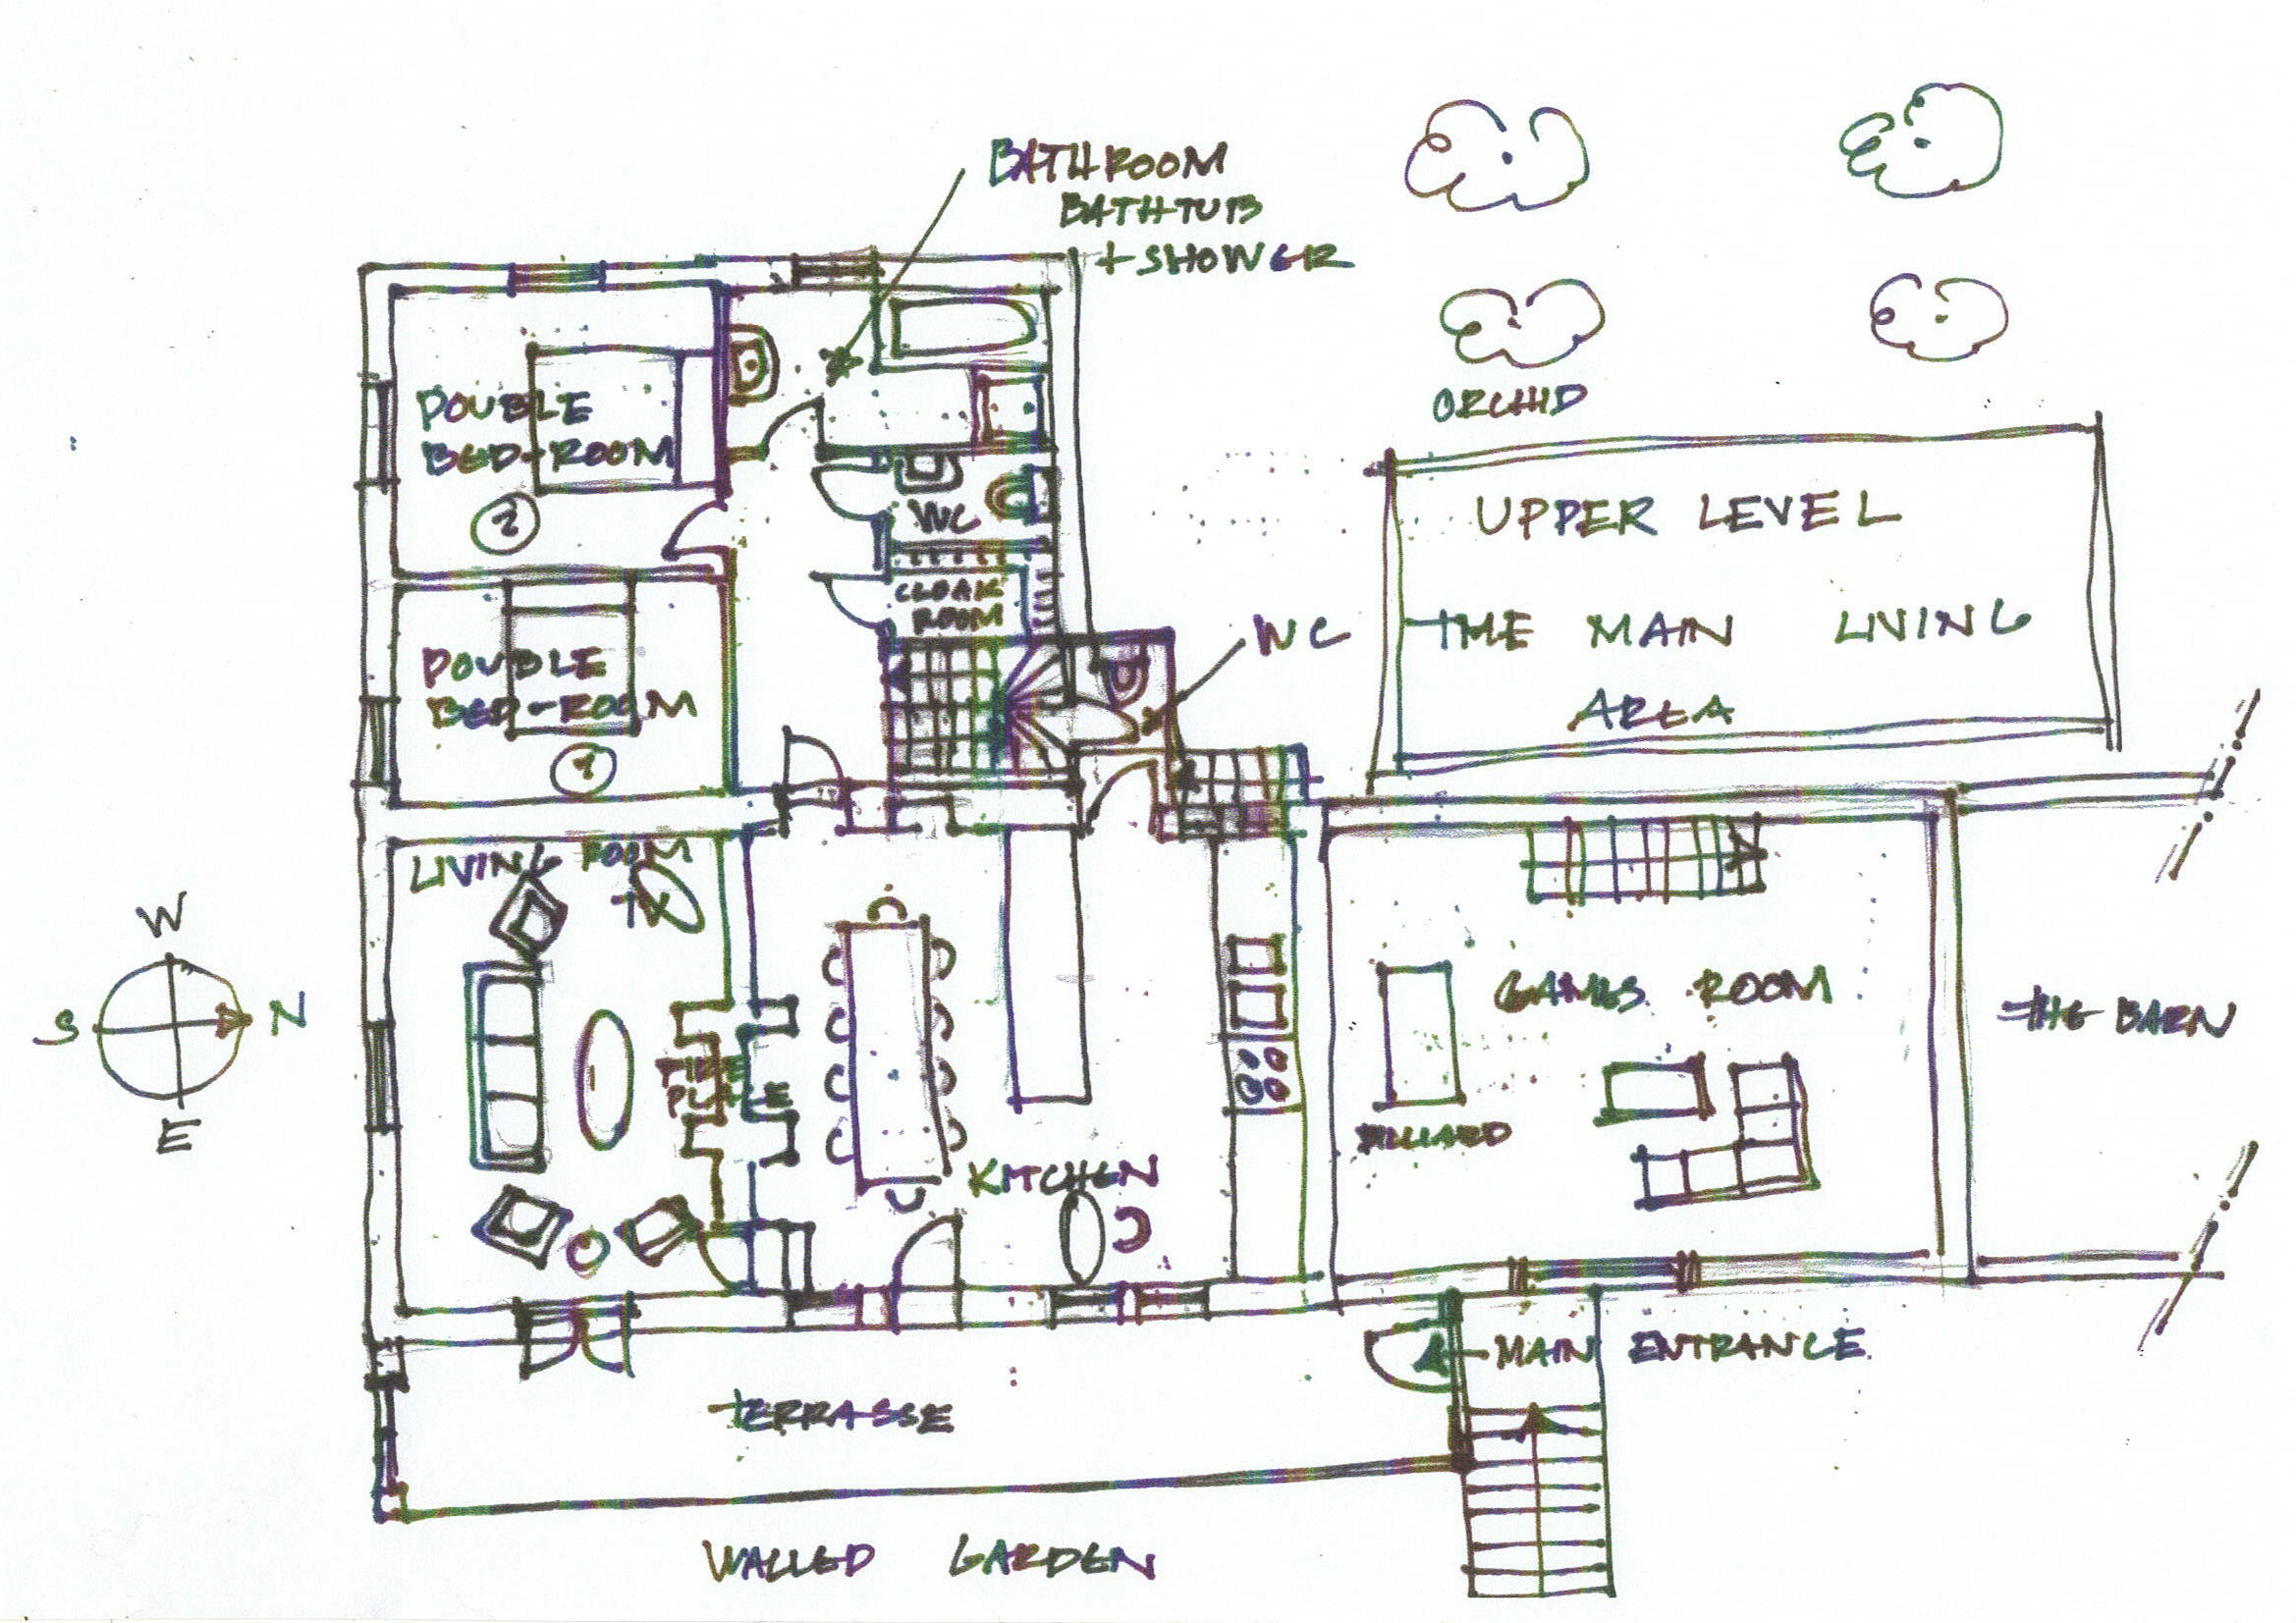 BATHROOM
BATHTUB
+ SHOWER
DOUBLE
BED-ROOM
2
ORCHID
WC
CLOAK
ROOM
UPPER LEVEL
THE MAIN LIVING
AREA
WC
DOUBLE
BED-ROOM
1
LIVING ROOM
TV
W
S N
E
FIRE
PLACE
GAMES ROOM
THE BARN
BILLIARD
KITCHEN
MAIN ENTRANCE
TERRASSE
WALLED GARDEN